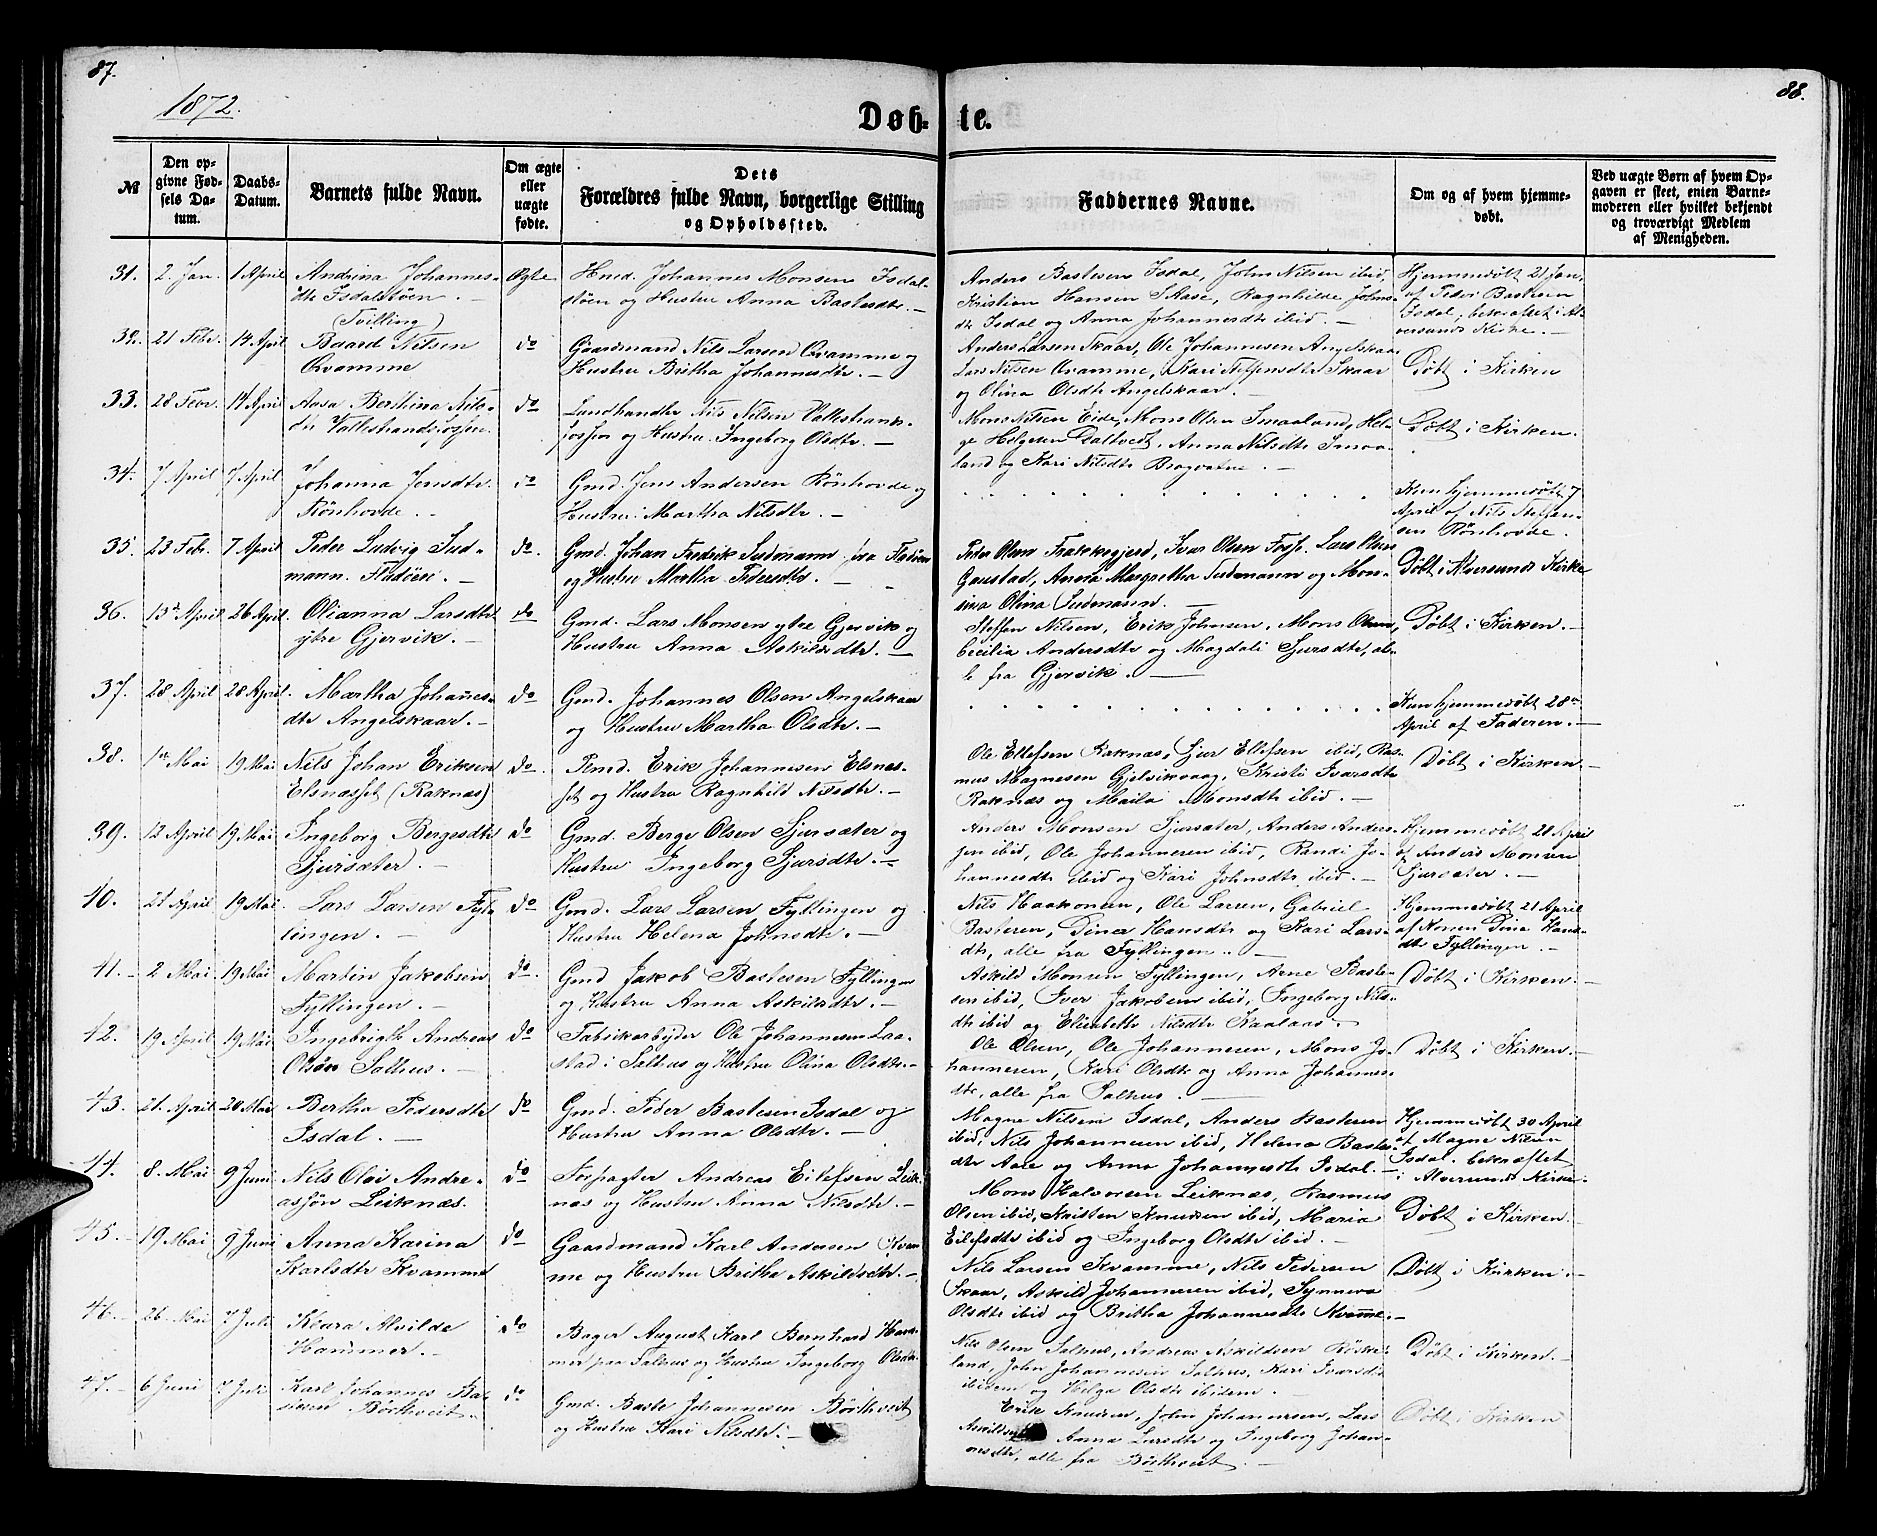 87.
88.
1872.
Døb-
te.
№
Den op-
givne Fød-
sels Da-
tum.
Daabs-
Datum.
Barnets fulde Navn.
Om ægte
eller
uægte
fødte.
Dets
Forældres fulde Navn, borgerlige Stilling
og Opholdssted.
Faddernes Navne.
Om og af hvem hjemme-
døbt.
Ved uægte Børn af hvem Op-
gaven er skeet, enten Barne-
moderen eller hvilket bekjendt
og troværdigt Medlem
af Menigheden.
31. 2. Jan. 1 April Andrina Johannes- Ægte Hmd. Johannes Monsen Isdal-
dtr Isdalstøen. — støen og Hustru Anna Bastesdtr. —
(Tvilling)
Anders Bastesen Isdal, John Nilsen ibid,
Kristian Hansen Aase, Ragnhilde Johns-
dtr Isdal og Anna Johannesdtr ibid. —
Hjemmedøbt 21 Jan.
af Peder Bastesen
Isdal; bekræftet i Al-
versunds Kirke. —
32. 21 Febr. 14 April Baard Nilsen do Gaardmand Nils Larsen Qvamme og
Qvamme Hustru Britha Johannesdtr. —
Anders Larsen Skaar, Ole Johannesen Angelskaar
Lars Nilsen Qvamme, Kari Steffensdtr Skaar
og Olina Olsdtr Angelskaar. —
Døbt i Kirken
33. 28 Febr. 14 April Aasa Berthina Nils- do Landhandler Nils Nilsen Vallestrands-
dtr Vallestrandsfossen. fossen og Hustru Ingeborg Olsdtr. —
Mons Nilsen Eide, Mons Olsen Smaaland, Hel-
ge Helgesen Daltveit, Anna Nilsdtr Smaa-
land og Kari Nilsdtr Bragvatne. —
Døbt i Kirken.
34. 7 April 7 April Johanna Jensdtr do Gmd. Jens Andersen Rönhovde og
Rönhovde. — Hustru Martha Nilsdtr. —
Kun hjemmedøbt 7
April af Nils Steffen-
sen Rönhovde.
35. 23 Febr. 7 April Peder Ludvig Sud- do. Gmd. Johan Fredrik Sudmann fra Fladöen
mann. Fladöen. — og Hustru Martha Pedersdtr. —
Peder Olsen Frækkegjerd, Ivar Olsen Foss. Lars Olsen
Gaustad, Andrea Margretha Sudmann og Mon-
sina Olina Sudmann. —
Døbt i Alversunds Kirke
36. 15de April 26 April. Olianna Larsdtr do Gmd. Lars Monsen ytre Gjervik og
ytre Gjervik. — Hustru Anna Askildsdtr. —
Steffen Nilsen, Erik Johnsen, Mons Olsen,
Cecilia Andersdtr og Magdali Sjursdtr, al-
le fra Gjervik. —
Døbt i Kirken. —
37. 28 April 28 April. Martha Johannes- do Gmd. Johannes Olsen Angelskaar
dtr Angelskaar. — og Hustru Martha Olsdtr. —
Kun hjemmedøbt 28de
April af Faderen. —
38. 1ste Mai 19 Mai Nils Johan Eriksen do Pmd. Erik Johannesen Elsnes-
Elsnesset (Raknæs) set og Hustru Ragnhild Nilsdtr. —
Ole Ellefsen Raknæs, Sjur Ellefsen ibid, Ras-
mus Magnesen Gjelsvikvaag, Kristi Ivarsdtr
Raknæs og Maila Monsdtr ibid. —
Døbt i Kirken. —
39. 12 April 19 Mai Ingeborg Bergesdtr do Gmd. Berge Olsen Sjursæter og
Sjursæter. — Hustru Ingeborg Sjursdtr. —
Anders Monsen Sjursæter, Anders Anders-
sen ibid, Ole Johannesen ibid, Randi Jo-
hannesdtr ibid og Kari Johnsdtr ibid. —
Hjemmedøbt 20 April
af Anders Monsen
Sjursæter. —
40. 21 April 19 Mai Lars Larsen Fyl- do Gmd. Lars Larsen Fyllingen og
lingen. — Hustru Helena Johnsdtr. —
Nils Haakonsen, Ole Larsen, Gabriel
Bastesen, Dina Hansdtr og Kari Lars-
dtr, alle fra Fyllingen. —
Hjemmedøbt 21 April
af Konen Dina Hans-
dtr Fyllingen. —
41. — 2 Mai 19 Mai Martin Jakobsen do. Gmd Jakob Bastesen Fyllingen
Fyllingen. — og Hustru Anna Askildsdtr. —
Askild Monsen Fyllingen, Arne Baste-
sen ibid, Iver Jakobsen ibid, Ingeborg Nils-
dtr ibid og Elisabeth Nilsdtr Kaalaas. —
Døbt i Kirken. —
42. 19 April 19 Mai Ingebrigth Andreas do Fabrikarbejder Ole Johannesen Laa-
Olsön Salhus. — stad i Salhus og Hustru Olina Olsdtr. —
Ole Olsen, Ole Johannesen, Mons Jo-
hannesen, Kari Olsdtr og Anna Johannes-
dtr, alle fra Salhus. —
Døbt i Kirken. —
43. 21. April 20 Mai Bertha Pedersdtr do Gmd. Peder Bastesen Isdal og
Isdal. — Hustru Anna Olsdtr. —
Magne Nilsen Isdal, Anders Bastesen
ibid, Nils Johannesen ibid, Helena Bastes-
dtr Aase og Anna Johannesdtr Isdal. —
Hjemmedøbt 30 April
af Magne Nilsen
Isdal. bekræftet
i Alversunds Kirke. —
44. 8. Mai 9 Juni Nils Olai Andre- do Forpagter Andreas Eilefsen Leik-
assön Leiknæs. næs og Hustru Anna Nilsdtr. —
Mons Halvorsen Leiknæs, Rasmus
Olsen ibid, Kristen Knudsen ibid, Maria
Eilefsdtr ibid og Ingeborg Olsdtr ibid. —
Døbt i Kirken. —
45. — 19 Mai 9 Juni Anna Karina do Gaardmand Karl Andersen Kvam-
Karlsdtr Kvamme me og Hustru Britha Askildsdtr. —
Nils Larsen Kvamme, Nils Pedersen
Skaar, Askild Johannesen ibid, Synneva
Olsdtr ibid og Britha Johannesdtr Kvamme. —
Døbt i Kirken. —
46. — 26. Mai 7 Juli Klara Alvilde do Bager August Karl Bernhard Ham-
Hammer. — mer paa Salhus og Hustru Ingeborg Olsdtr.
Nils Olsen Salhus, Andreas Askildsen Röske-
land, John Johannesen Salhus, Kari Ivarsdtr
ibidem og Helga Olsdtr ibidem. —
Døbt i Kirken. —
47. — 6 Juni 7 Juli Karl Johannes Ba- do Gmd. Baste Johannesen Börthveit
stesen Börthveit. og Hustru Kari Nilsdtr. —
Erik Knudsen, John Johannesen, Lars
Anna Larsdtr og Ingeborg Johan-
nesdtr, alle fra Börthveit. —
Døbt i Kirken